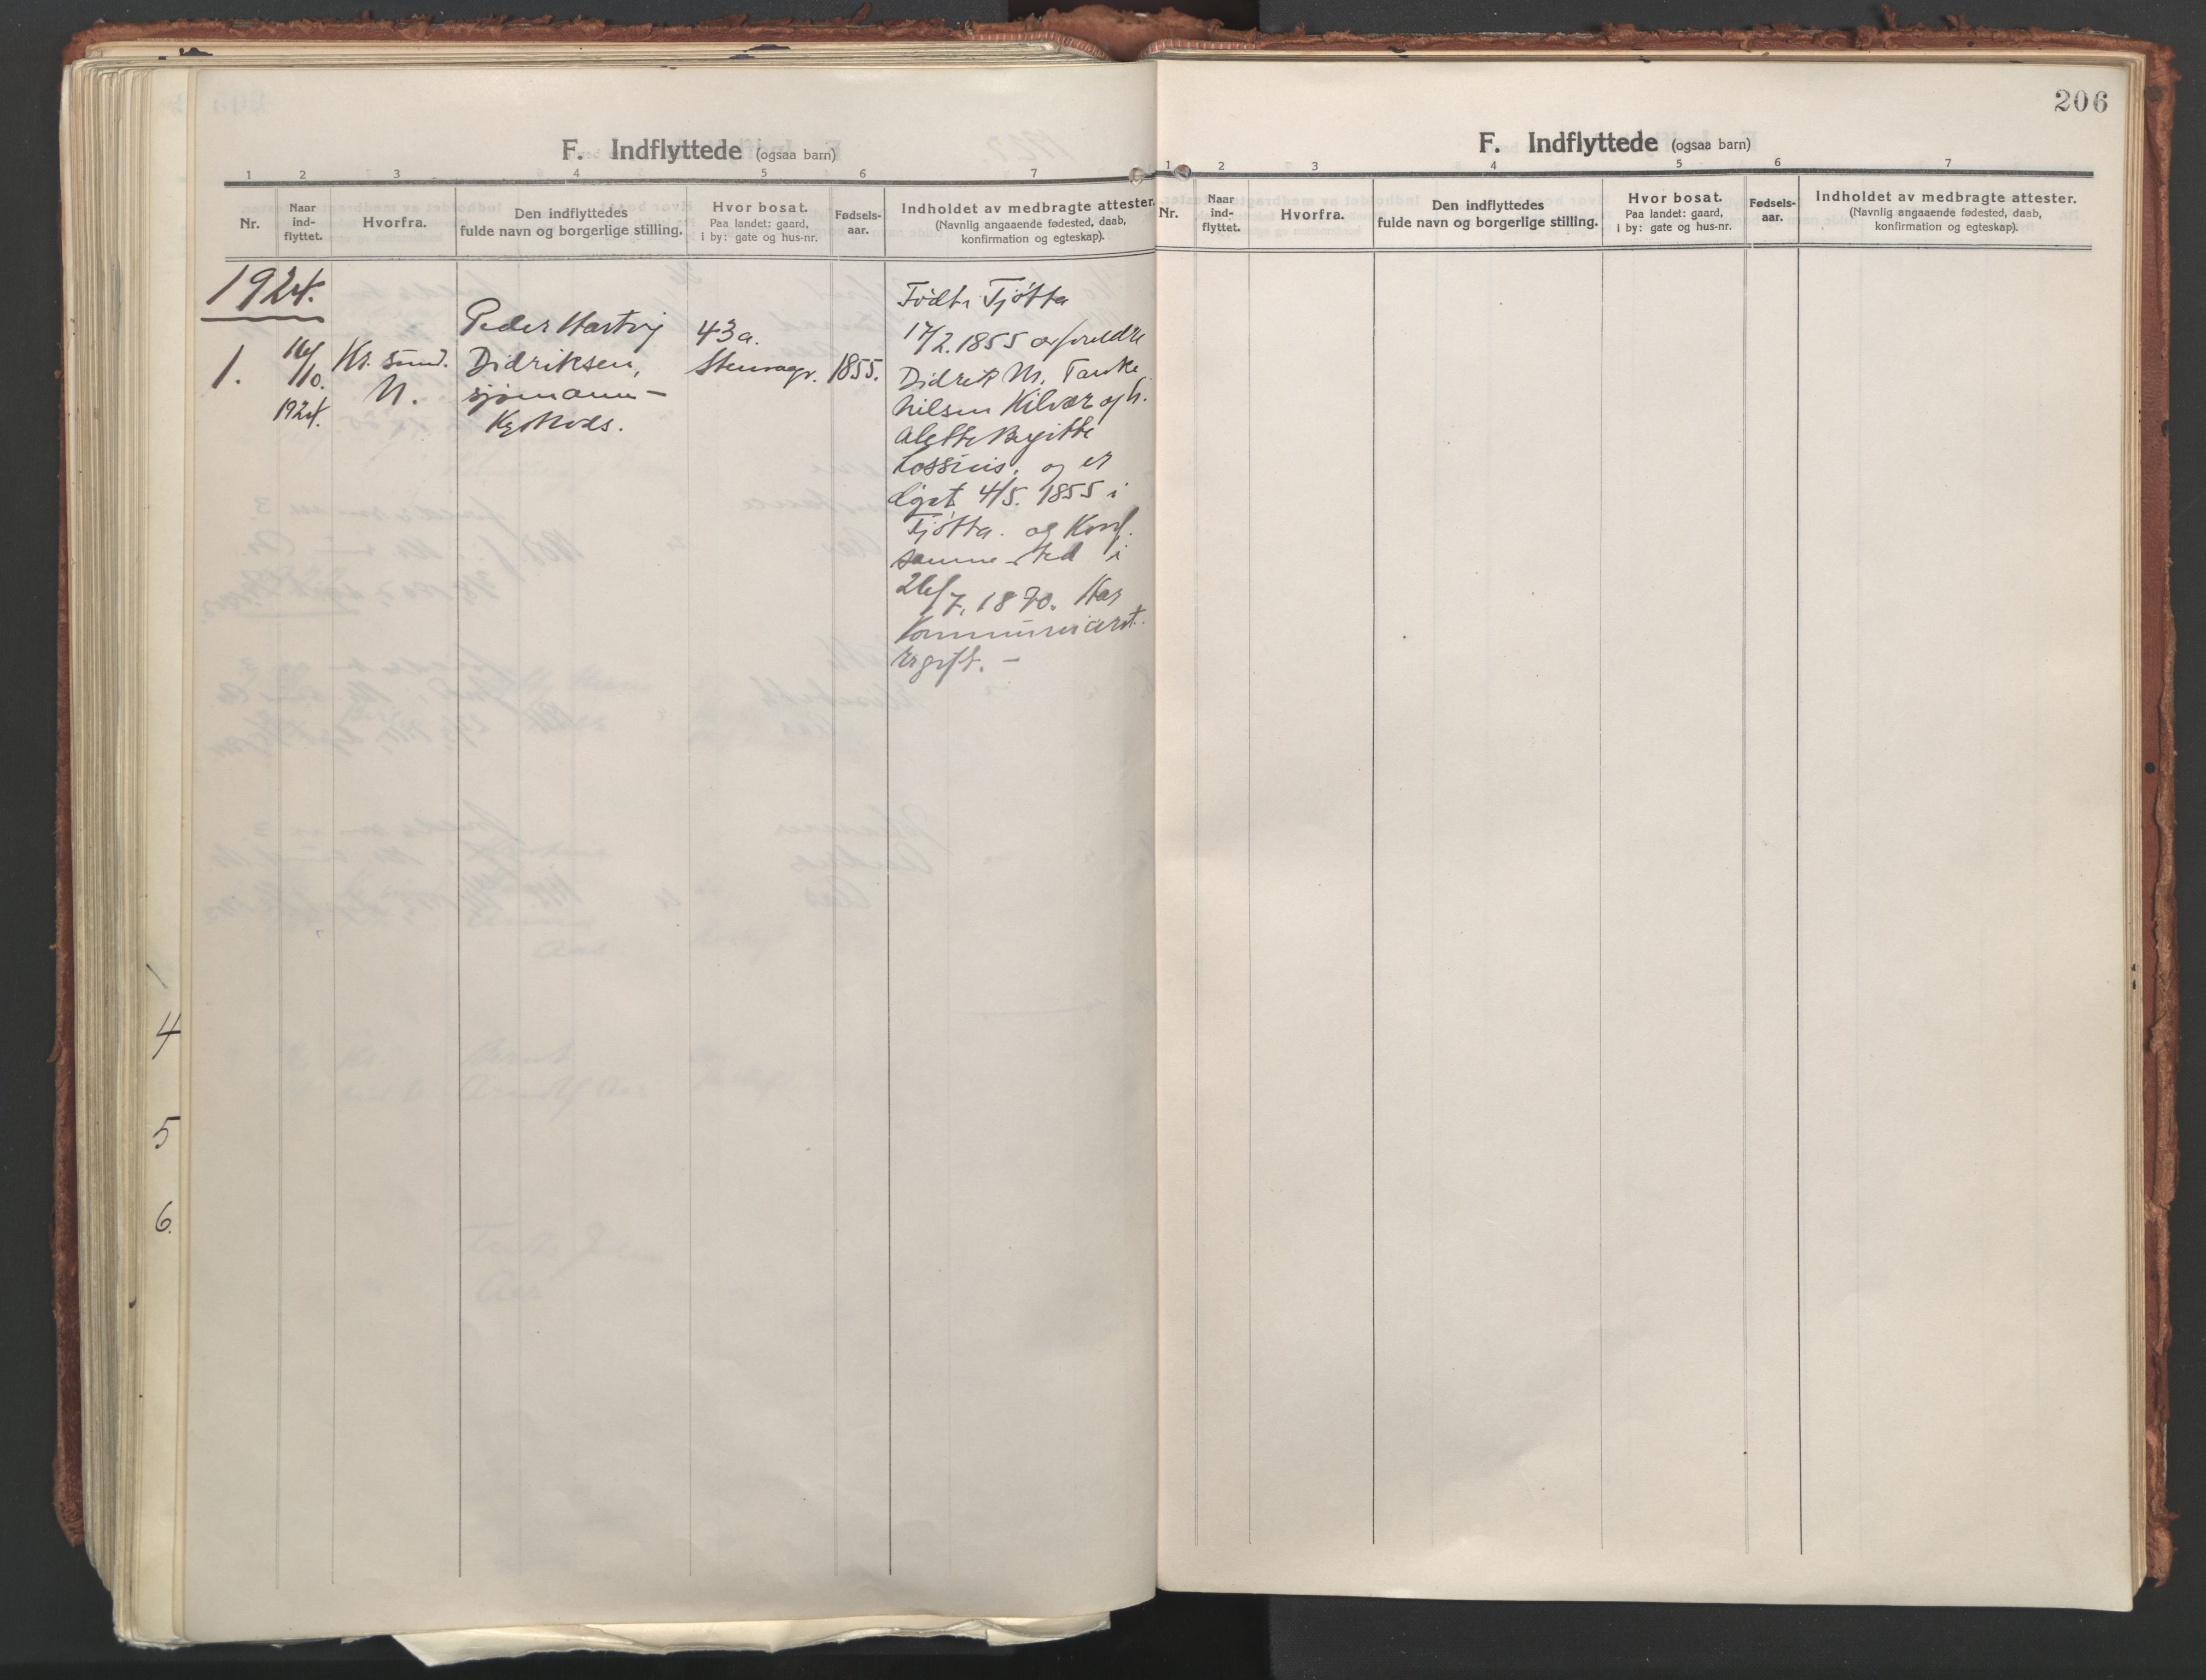 F. Indflyttede (ogsaa barn)
1 2 3 4 5 6 7
Nr.
Naar ind-flyttet.
Hvorfra.
Den indflyttedes
fulde navn og borgerlige stilling.
Hvor bosat.
Paa landet: gaard,
i by: gate og hus-nr.
Fødsels-
aar.
Indholdet av medbragte attester.
(Navnlig angaaende fødested, daab,
konfirmation og egteskap).
1924.
1.
16/
10.
1924.
Kr. sund.
N.
Peder Hartvig
Didriksen,
sjømann —
43a.
Stensagv.
1855.
Født i Tjøtta
17/2. 1855 av foreldre
Didrik M. Tanke
Nilsen Kilvær og h.
Alette Birgitte
Lossius, og er
døpt 4/5. 1855 i
Tjøtta. og Konf.
samme sted i
26/7. 1870. Har
kommunicert.
Er gift. —
4
5
6.
206
F. Indflyttede (ogsaa barn)
1 2 3 4 5 6 7
Nr.
Naar
ind-
flyttet.
Hvorfra.
Den indflyttedes
fulde navn og borgerlige stilling.
Hvor bosat.
Paa landet: gaard,
i by: gate og hus-nr.
Fødsels-
aar.
Indholdet av medbragte attester.
(Navnlig angaaende fødested, daab,
konfirmation og egteskap).